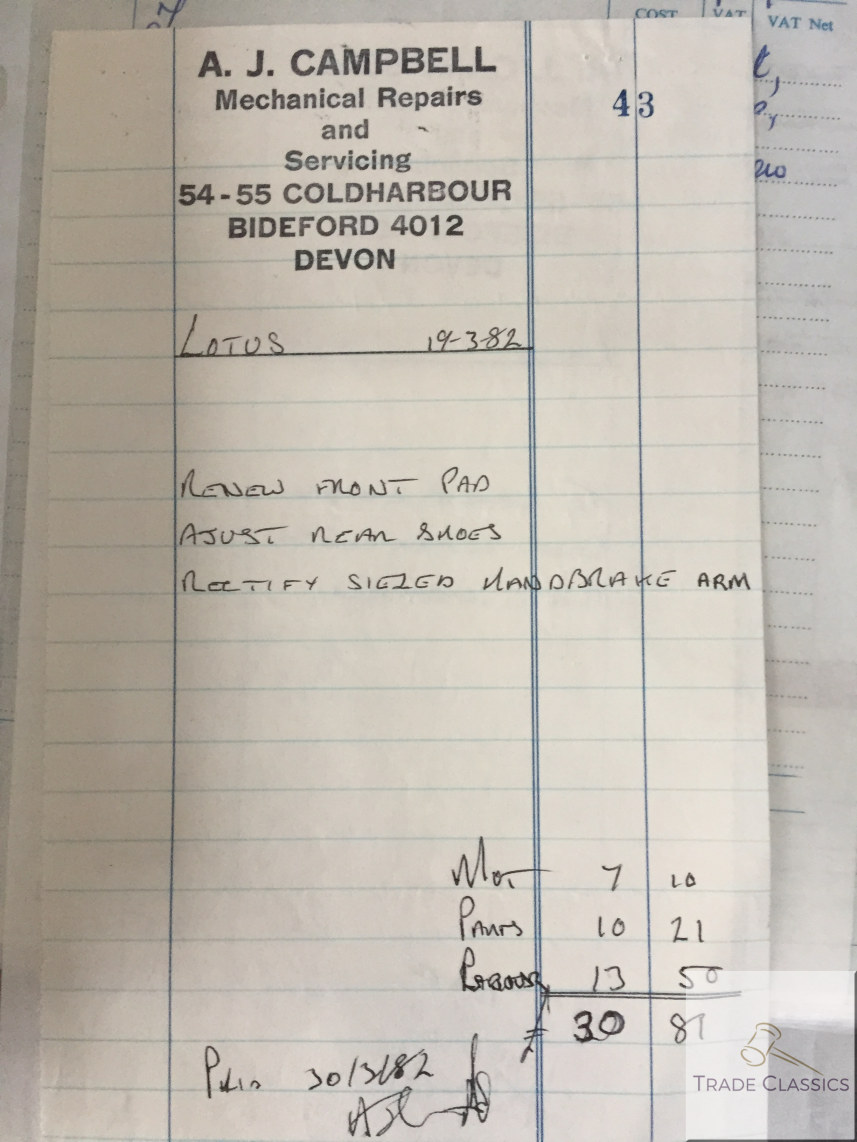 COST VAT VAT Net
A. J. CAMPBELL
Mechanical Repairs
and
Servicing
54-55 COLDHARBOUR
BIDEFORD 4012
DEVON
43
LOTUS 19-3-82
RENEW FRONT PAD
AJUST REAR SHOES
RECTIFY SIEZED HANDBRAKE ARM
MOT 7 10
PARTS 10 21
LABOUR 13 50
£ 30 81
PAID 30/3/82
TRADE CLASSICS